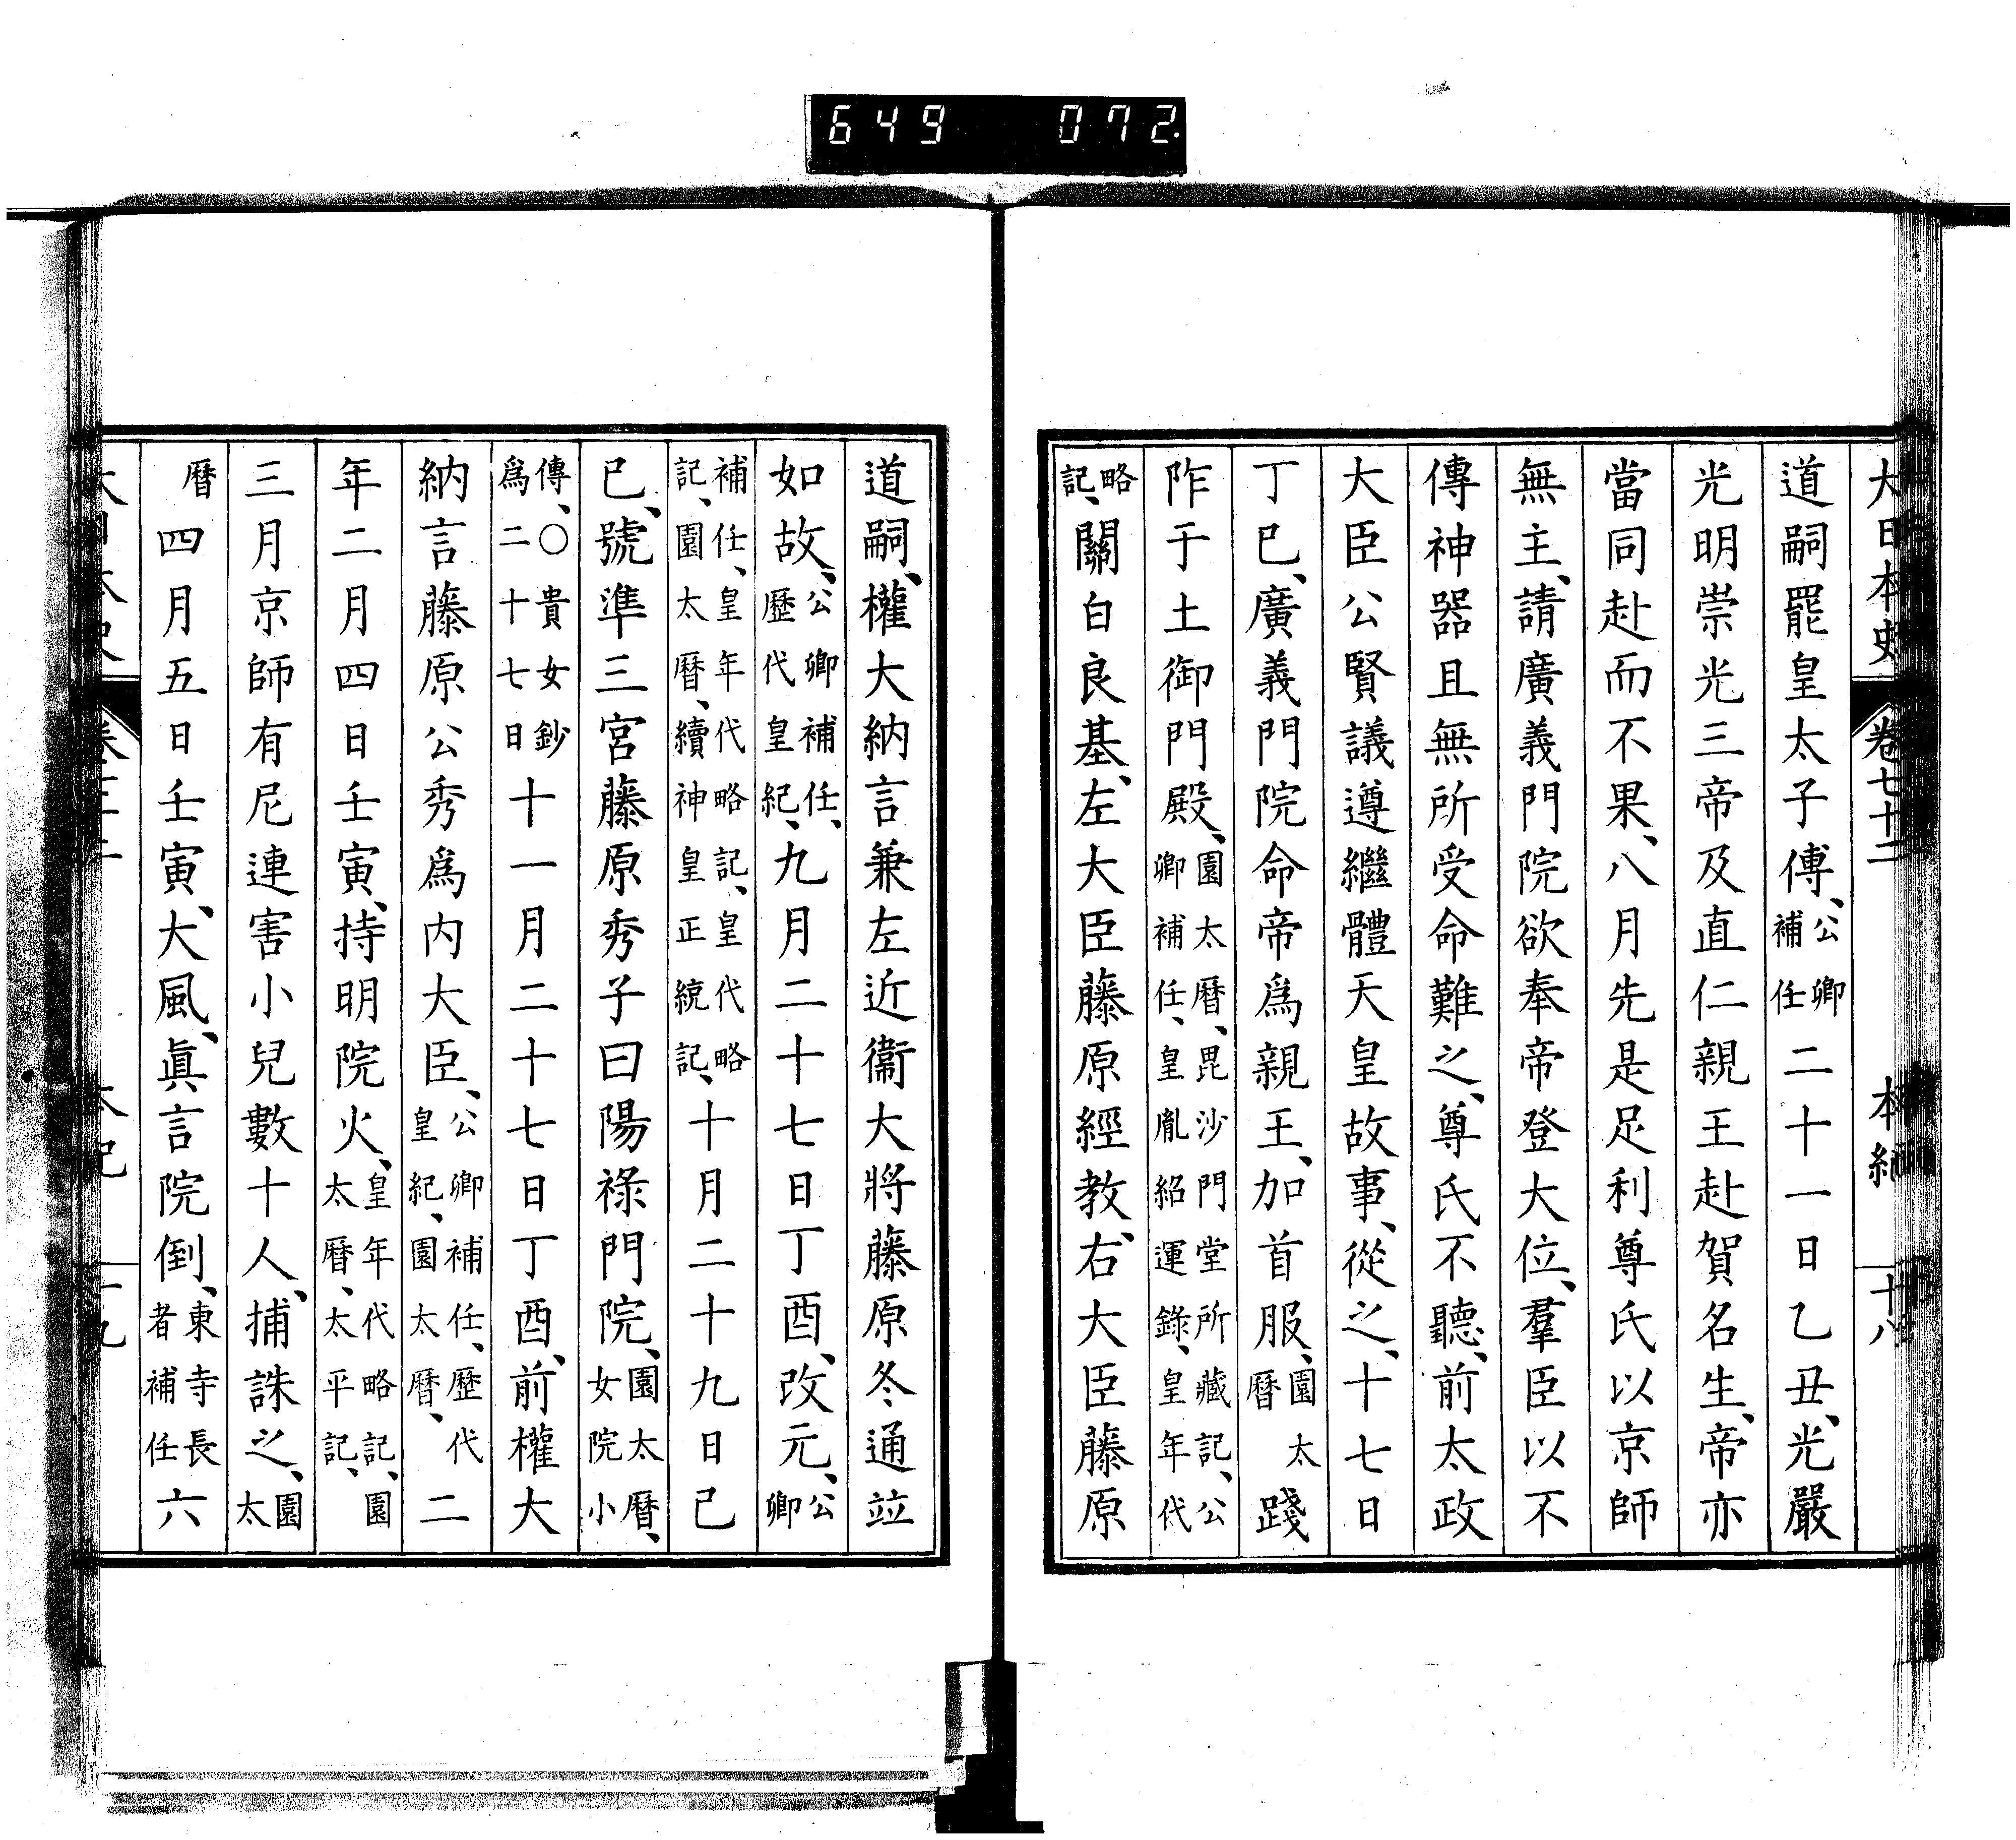 649 072
大日本史 卷七十二 本紀 十八
道嗣罷皇太子傅、公卿補任二十一日乙丑、光嚴
光明崇光三帝及直仁親王赴賀名生、帝亦
當同赴而不果、八月先是足利尊氏以京師
無主、請廣義門院欲奉帝登大位、羣臣以不
傳神器且無所受命難之、尊氏不聽、前太政
大臣公賢議遵繼體天皇故事、從之、十七日
丁巳、廣義門院命帝爲親王、加首服、園太曆踐
阼于土御門殿、園太曆、毘沙門堂所藏記、公卿補任、皇胤紹運錄、皇年代
略記、關白良基、左大臣藤原經教、右大臣藤原
道嗣、權大納言兼左近衞大將藤原冬通竝
如故、公卿補任、歷代皇紀、九月二十七日丁酉、改元、公卿
補任、皇年代略記、皇代略記、園太曆、續神皇正統記、十月二十九日己
巳、號準三宮藤原秀子曰陽祿門院、園太曆、女院小
傳、〇貴女鈔爲二十七日十一月二十七日丁酉、前權大
納言藤原公秀爲内大臣、公卿補任、歷代皇紀、園太曆、二
年二月四日壬寅、持明院火、皇年代略記、園太曆、太平記、
三月京師有尼連害小兒數十人、捕誅之、園太
曆四月五日壬寅、大風、眞言院倒、東寺長者補任六